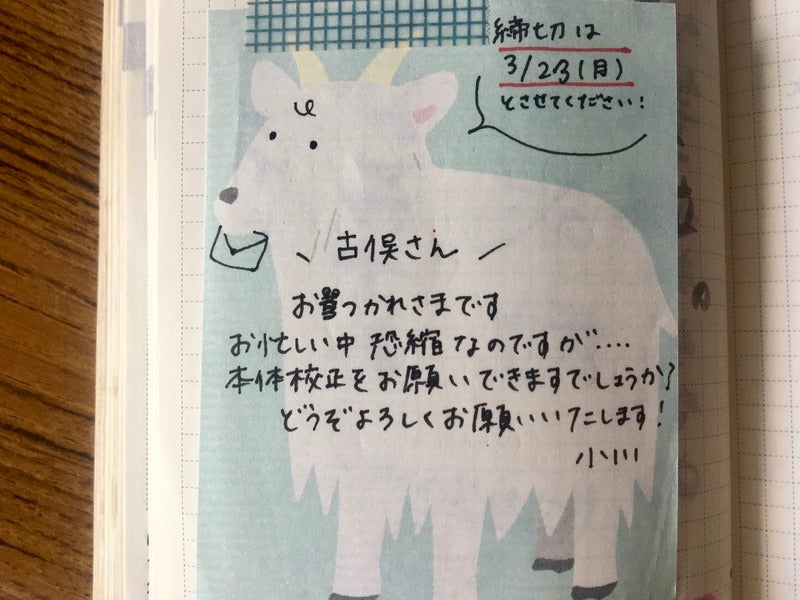 締切は
3/23(月)
とさせてください!
古俣さん
お つかれさまです
お忙しい中 恐縮なのですが‥‥
本体校正をお願いできますでしょうか?
どうぞよろしくお願いいたします!
小川